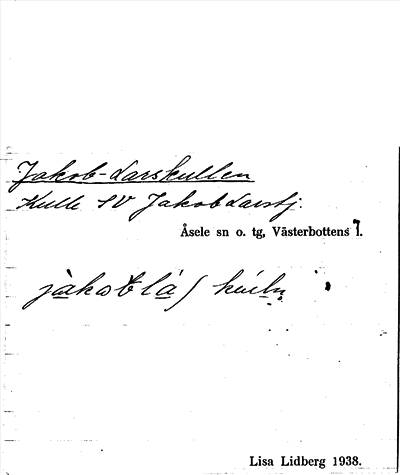 Jakob-Larskullen
Kulle SV Jakob Larstj.
Åsele sn o. tg, Västerbottens l.
Lisa Lidberg 1938.